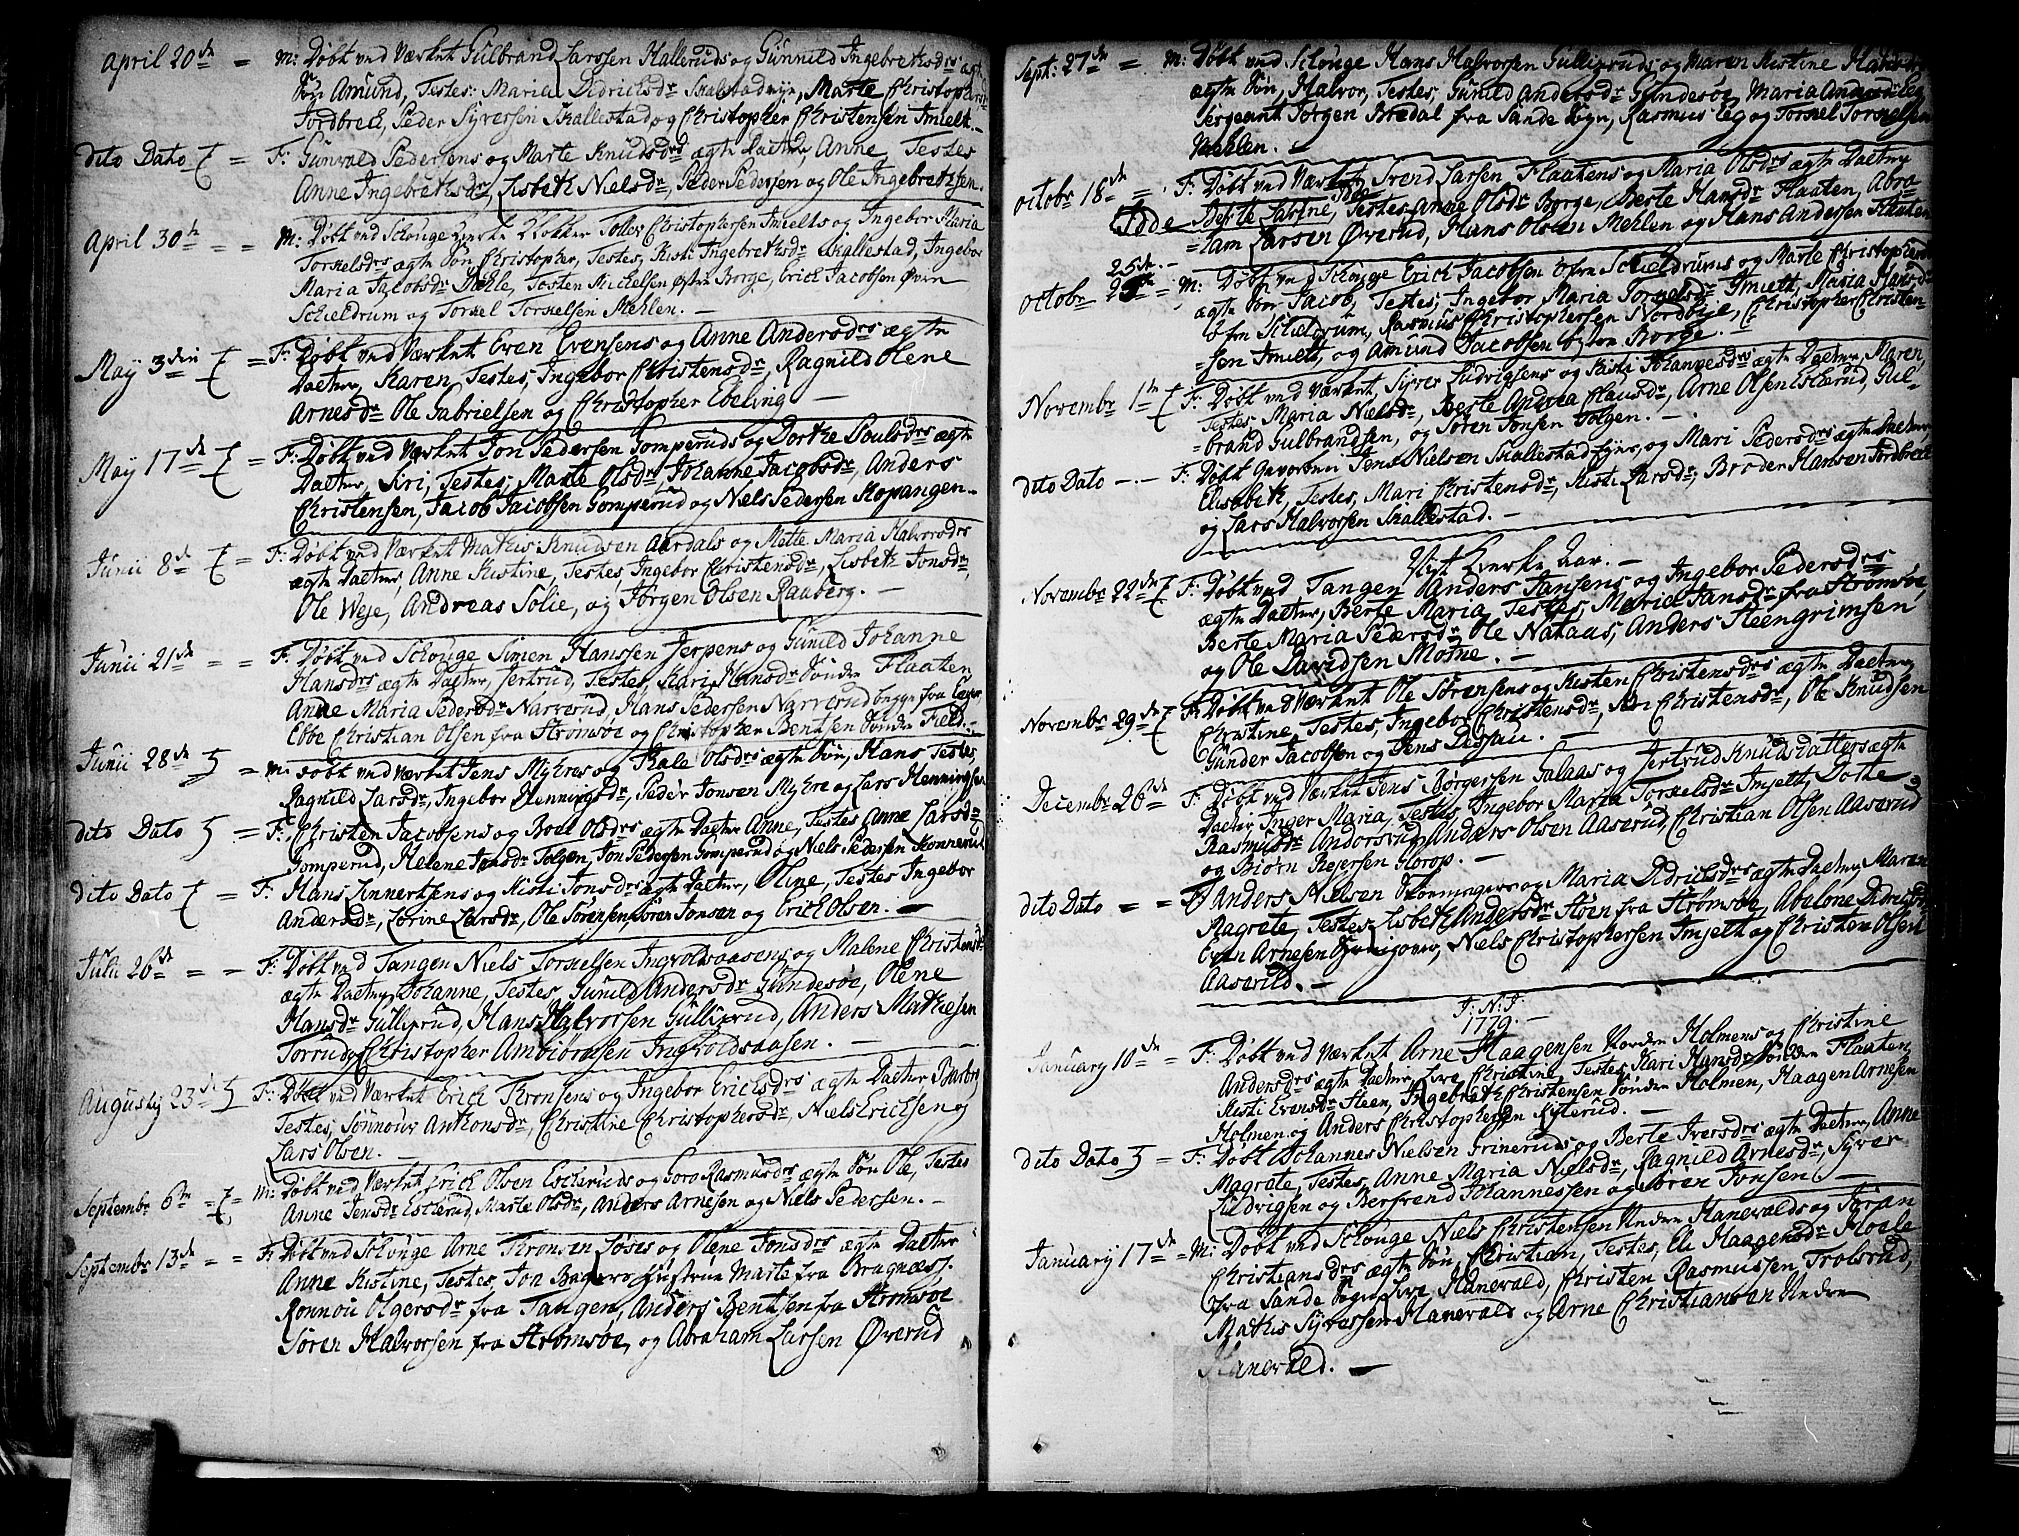 April 20de = M: Døbt ved Værket Gulbrand Larssen Hallerudsog Gunnild Ingebrethsdrs ægte
Søn Amund, Testes: Maria Didrichsdr Skalstadeije, Marte Christophersdr
Jordbreck, Peder Syversen Skallestad, og Christopher Christensen Imielt.
dito Dato = F: Gunvald Pedersens og Marte Knudsdrs ægte Datter, Anne Testes
Anne Ingebrethsdr, Lisbeth Nielsdr, Peder Pedersen og Ole Ingebrethsen.
April 30th = = M: Døbt ved Schouge Kirke Klokker Tollev Christophersen Imielts og Ingebor Maria
Torkelsdrs ægte Søn Christopher, Testes, Kisti Ingebrethsdr Skallestad, Ingebor
Maria Jacobsdr Mehle, Torsten Michelsen Østre Borge, Erick Jacobsen Øvre
Schieldrum og Torkel Torkelsen Mehlen. —
May 3die = F: Døbt ved Værket Even Evensens og Anne Andersdrs ægte
Datter, Karen, Testes, Ingebor Christensdr, Ragnild Olene
Arnesdr Ole Gabrielsen og Christopher Ebeling —
May 17de = F: Døbt ved Værket Jon Pedersen Gomperuds og Dorthe Poulsdrs ægte
Datter, Siri, Testes; Marte Olsdr, Johanne Jacobsdr, Anders
Christensen, Jacob Jacobsen Gomperud og Niels Pedersen Kopangen.
Junii 8de = F: Døbt ved Værket Mathis Knudsen Aardals og Mette Maria Halvorsdrs
ægte Datter, Anne Kistine, Testes, Ingebor Christensdr, Lisbeth Jonsdr,
Ole Weje, Andreas Solie, og Jørgen Olsen Raaberg. —
Junii 21de = = F: Døbt ved Schouge Simen Hanssen Jerpens og Gunild Johanne
Hansdrs ægte Datter, Jertrud, Testes, Kari Hansdr Søndre Flaaten
Anne Maria Pedersdr Narverud, Hans Pedersen Narverud begge fra Eger
Ebbe Christian Olsen fra Strømsøe og Christopher Bentsen Søndre Field.
Junii 28de = M: Døbt ved Værket Jens Myhres og Kale Olsdrs ægte Søn, Hans Testes,
Ragnild Larsdr, Ingebor Henningsdr, Peder Jonsen Myhre og Lars Henningsen
dito Dato = F: Christen Jacobsens og Boel Olsdrs ægte Datter Anne, Testes Anne Larsdr
Gomperud, Helene Jonsdr Tolgen, Jon Pedersen Gomperud og Niels Pedersen
dito Dato = F: Hans Linnertsens og Kisti Jonsdrs ægte Datter, Oline, Testes Ingebor
Andersdr, Lorine Larsdr, Ole Sörensen, Sören Jonsen og Erich Olsen. —
Julii 26de = = F: Døbt ved Tangen Niels Torkelsen Ingvoldsaasens og Malene Christensdrs
ægte Datter, Johanne, Testes, Gunild Andersdr Gundesøe, Olene
Hansdr Gullixrud, Hans Halvorsen Gullixrud, Anders Mathiesen
Torrud, Christopher Ambiörnsen Ingvoldsaasen. —
Augusty 23de F: Døbt ved Værket Erick Thronsens og Ingebor Ericksdrs ægte Datter Barbra
Testes, Sönnouw Anthonsdr, Christine Christophersdr, Niels Ericksen og
Lars Olsen. —
Septembr 6te = M: Døbt ved Værket Erick Olsen Eschieruds og Goro Rasmusdrs ægte Søn Ole, Testes
Anne Jensdr Eskerud, Marte Olsdr, Anders Arnesen og Niels Pedersen. —
Septembr 13de = = F: Døbt ved Schouge Arne Thronsen Löses og Olene Jonsdrs ægte Datter
Anne Kistine, Testes, Jon Bagers Hustrue Marte fra Bragnæss.
Ronnou Olgersdr fra Tangen, Anders Bentsen fra Strømsøe
Søren Halvorsen fra Strømsøe, og Abraham Larsen Øverud
Sept: 27de = M: Døbt ved Schouge Hans Halvorsen Gullixruds og Maren Kistine Hansdrs
ægte Søn, Halvor, Testes, Gunild Andersdr Gundesøe, Maria
Sergeant Jørgen Bredal fra Sande Sogn, Rasmus Leg og Torkel Torkelsen
Mehlen. —
octobr 18de = F: Døbt ved Værket Svend Larsen Flaatens og Maria Olsdrs ægte Datter
Idde Berte Kistine, Testes Anne Olsdr Borge, Berte Hansdr Flaaten, Abra
=ham Larsen Øverud, Hans Olsen Mehlen og Hans Andersen Flaaten
25de. —
octobr 25de = M: Døbt ved Schouge Erick Jacobsen Øfre Schieldrums og Marte Christophersdrs
ægte Søn Jacob, Testes, Ingebor Maria Torkelsdr Imielt, Maria Hansdr
Øfre Schieldrum, Rasmus Christophersen Nordbye, Christopher Christen
=sen Imielt, og Amund Jacobsen Østre Borge. —
Novembr 1te F: Døbt ved Værket, Syver Ludvigsens og Kisti Johannesdrs ægte Datter, Maren,
Testes, Maria Nielsdr, Berte Andrea Clausdr, Arne Olsen Eskerud, Gul-
=brand Gulbrandsen, og Søren Jonsen Tolgen. —
dito Dato — . — F: Døbt Gevorben Jens Nielsen Skallestad Eyes, og Mari Pedersdrs ægte Datter,
Elisebeth, Testes, Mari Christensdr, Kisti Larsdr, Broder Hansen Jordbreck
og Lars Halvorsen Skallestad. —
Nyt Kierke Aar. —
Novembr 22de F: Døbt ved Tangen Anders Jansens og Ingebor Pedersdrs
ægte Datter, Berte Maria, Testes, Maria Jansdr fra Strømsøe,
Berte Maria Pedersdr Ole Nataas, Anders Steengrimsen
og Ole Davidsen Mosne. —
Novembr 29de F: Døbt ved Værket Ole Sörensens og Kisten Christensdrs ægte Datter
Christine, Testes, Ingebor Christensdr, Siri Christensdr, Ole Knudsen
Gunder Jacobsen og Jens Dessau. —
Decembr 26de F: Døbt ved Værket Jens Börgersen Galaas og Jertrud Knudsdatters ægte
Datter Inger Maria, Testes, Ingebor Maria Torkelsdr Imjelt, Dorthe
Rasmusdr Andorsrud, Anders Olsen Aaserud, Christian Olsen Aaserud
og Biørn Rejersen Glorop. —
dito Dato = = F Anders Nielsen og Maria Didrichsdrs ægte Datter Maren
Magrete, Testes, Lisbeth Andersdr Støen fra Strømsøe, Abelone Didrichsdr
Even Arnesen, Niels Christophersen Imjelt og Christen Olsen
Aaserud. —
J: N: J
1779. —
January 10de = F: Døbt ved Værket Arne Haagensen Nordre Holmens og Christine
Andersdrs ægte Datter, Live Christine, Testes, Kari Hansdr Søndre Flaaten,
Kisti Evensdr Steen, Ingebreth Christensen Søndre Holmen, Haagen Arnesen
Holmen og Anders Christophersen Syterud. —
dito Dato = F: Døbt Johannes Nielsen Grineruds og Berte Iversdrs ægte Datter, Anne
Magrete, Testes, Anne Maria Nielsdr, Ragnild Arnesdr, Syver
Ludvigsen og Bersvend Johannessen og Søren Jonsen. —
January 17de = M: Døbt ved Schouge Niels Christensen Nedre Hanevalds og Jöran
Christiansdrs ægte Søn, Christian, Testes, Eli Haagensdr Hoele
fra Sande Sogn, Live Hanevald, Christen Rasmussen, Trolsrud,
Mathis Syversen Hanevald og Arne Christiansen Nedre
Hanevald. —